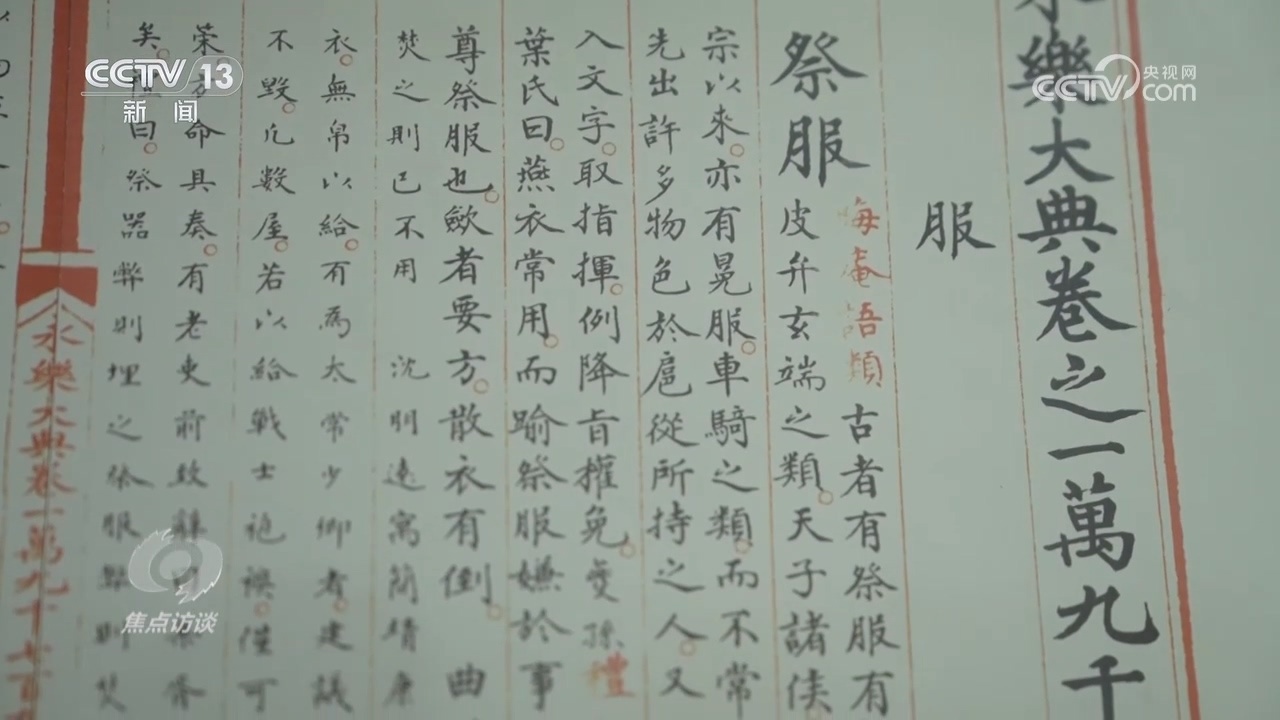 CCTV 13
新闻
央视网
CCTV com
永樂大典卷之一萬九千
服
祭服
晦庵語類 古者有祭服有
皮弁玄端之類。天子諸侯
宗以來。亦有冕服。車騎之類。而不常
先出許多物色於扈從所持之人。又
入文字。取指揮。例降旨權免。夔孫 禮
葉氏曰。燕衣常用。而踰祭服嫌於事
尊祭服也。歛者要方。散衣有倒。 曲
焚之則已不用 沈明遠寓簡靖康
衣。無帛以給。有為太常少卿者。建議
不毀。凡數屋。若以給戰士袍襖。僅可
命具奏。有老吏前致辭曰
矣。禮曰。祭器弊則埋之祭服弊則焚
永樂大典卷一萬九千七百
焦点访谈